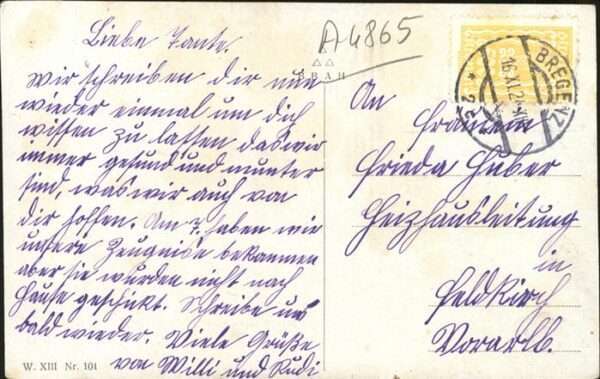 Liebe Tante.
Wir schreiben dir nun
wieder einmal um dich
wissen zu lassen das wir
immer gesund und munter
sind, was wir auch von
dir hoffen. Am 7. haben wir
unsere Zeugnise bekommen
aber sie wurden nicht nach
Hause geschikt. Schreibe uns
bald wieder. Viele Grüße
von Willi und Rudi
W. XIII Nr. 101
A 4865
BRAH
BREGENZ
16.XI.2
An
Fräulein
Frieda Huber
Heizhausleitung
in
Feldkirch
Vorarlb.